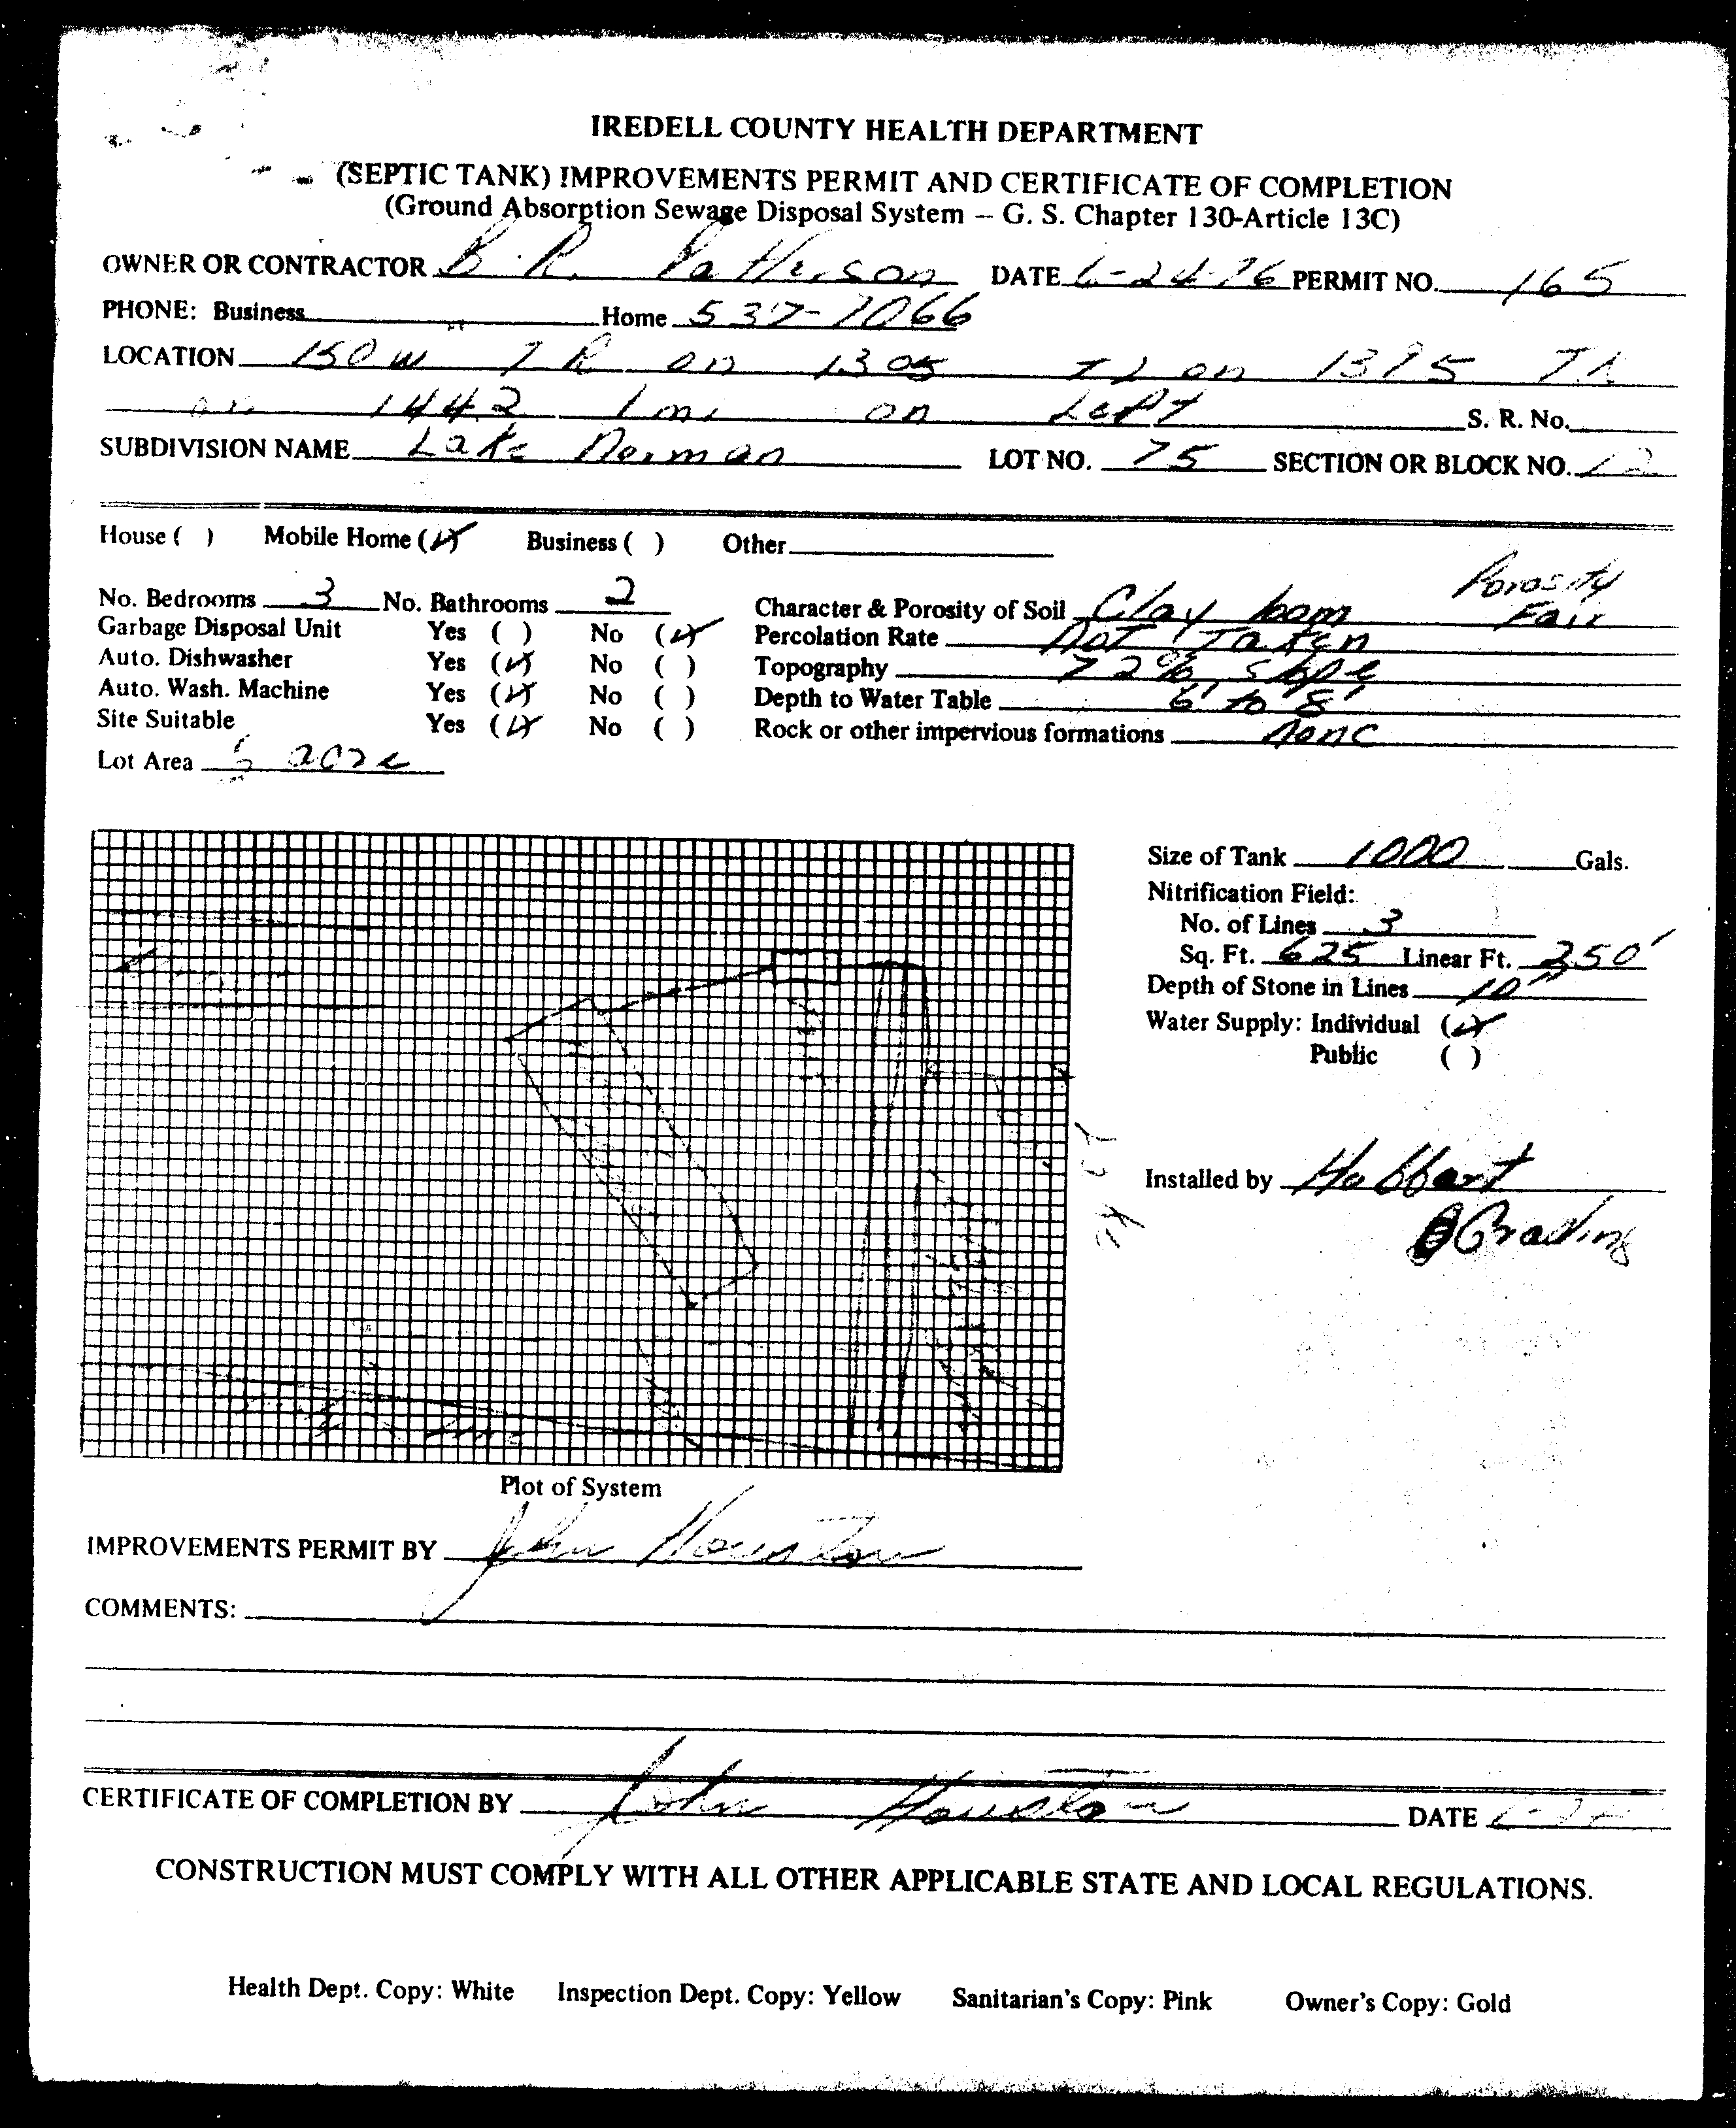 IREDELL COUNTY HEALTH DEPARTMENT
(SEPTIC TANK) IMPROVEMENTS PERMIT AND CERTIFICATE OF COMPLETION
(Ground Absorption Sewage Disposal System – G. S. Chapter 130-Article 13C)
OWNER OR CONTRACTOR B. R. Patterson DATE 6-24-76 PERMIT NO. 165
PHONE: Business Home 537-7066
LOCATION 150 W T R on 1305 T L on 1375 T
on 1442 1 mi on Left S. R. No.
SUBDIVISION NAME Lake Norman LOT NO. 75 SECTION OR BLOCK NO. 12
House ( ) Mobile Home (✓) Business ( ) Other
No. Bedrooms 3 No. Bathrooms 2 Character & Porosity of Soil Clay loam Porosity Fair
Garbage Disposal Unit Yes ( ) No (✓) Percolation Rate Not Taken
Auto. Dishwasher Yes (✓) No ( ) Topography 72% slope
Auto. Wash. Machine Yes (✓) No ( ) Depth to Water Table 6' to 8'
Site Suitable Yes (✓) No ( ) Rock or other impervious formations None
Lot Area acre
Size of Tank 1000 Gals.
Nitrification Field:
No. of Lines 3
Sq. Ft. 625 Linear Ft. 250'
Depth of Stone in Lines 10"
Water Supply: Individual (✓)
Public ( )
Installed by Hubbart
Grading
Plot of System
IMPROVEMENTS PERMIT BY John Houston
COMMENTS:
CERTIFICATE OF COMPLETION BY John Houston DATE
CONSTRUCTION MUST COMPLY WITH ALL OTHER APPLICABLE STATE AND LOCAL REGULATIONS.
Health Dept. Copy: White Inspection Dept. Copy: Yellow Sanitarian's Copy: Pink Owner's Copy: Gold